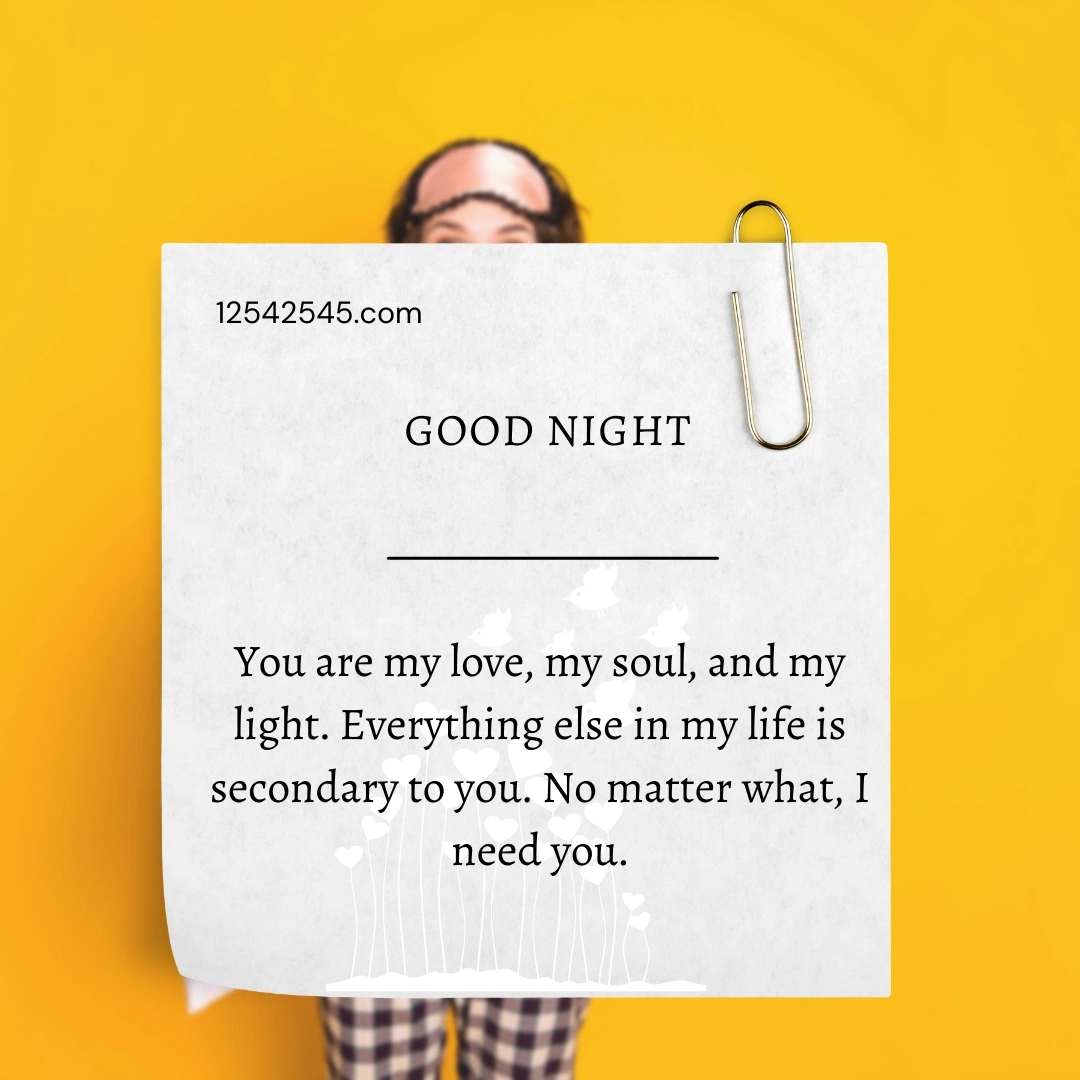 12542545.com
GOOD NIGHT
You are my love, my soul, and my
light. Everything else in my life is
secondary to you. No matter what, I
need you.